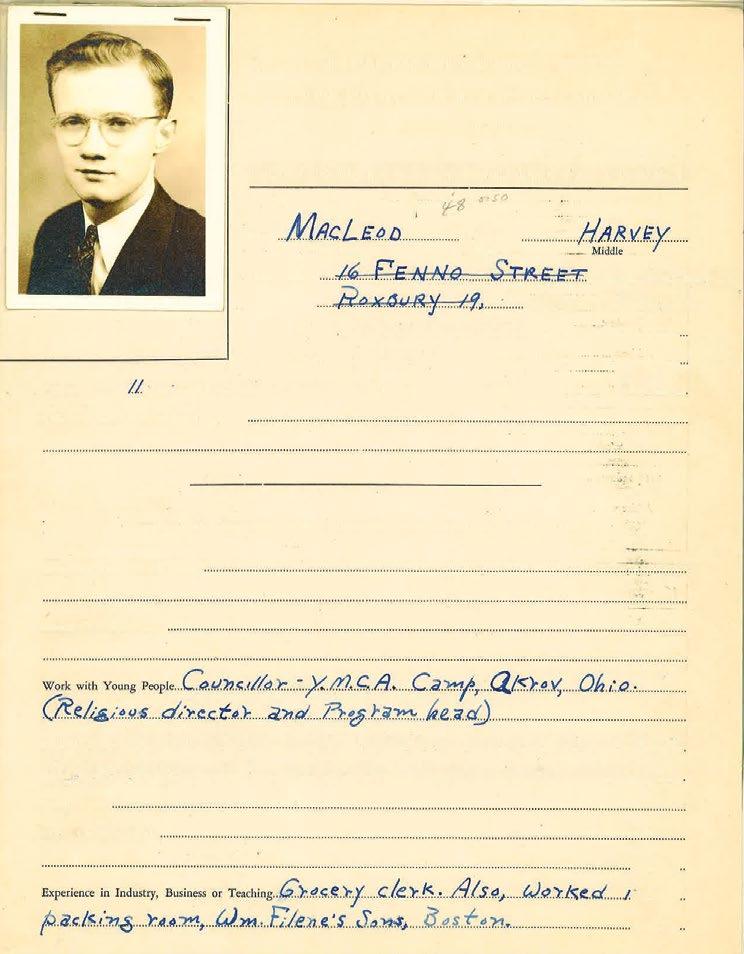 48
MACLEOD HARVEY
Middle
16 FENNO STREET
ROXBURY 19,
11
Work with Young People Councillor - Y.M.C.A. Camp, Akrov, Ohio.
(Religious director and Program head)
Experience in Industry, Business or Teaching Grocery clerk. Also, worked i
packing room, Wm. Filene's Sons, Boston.